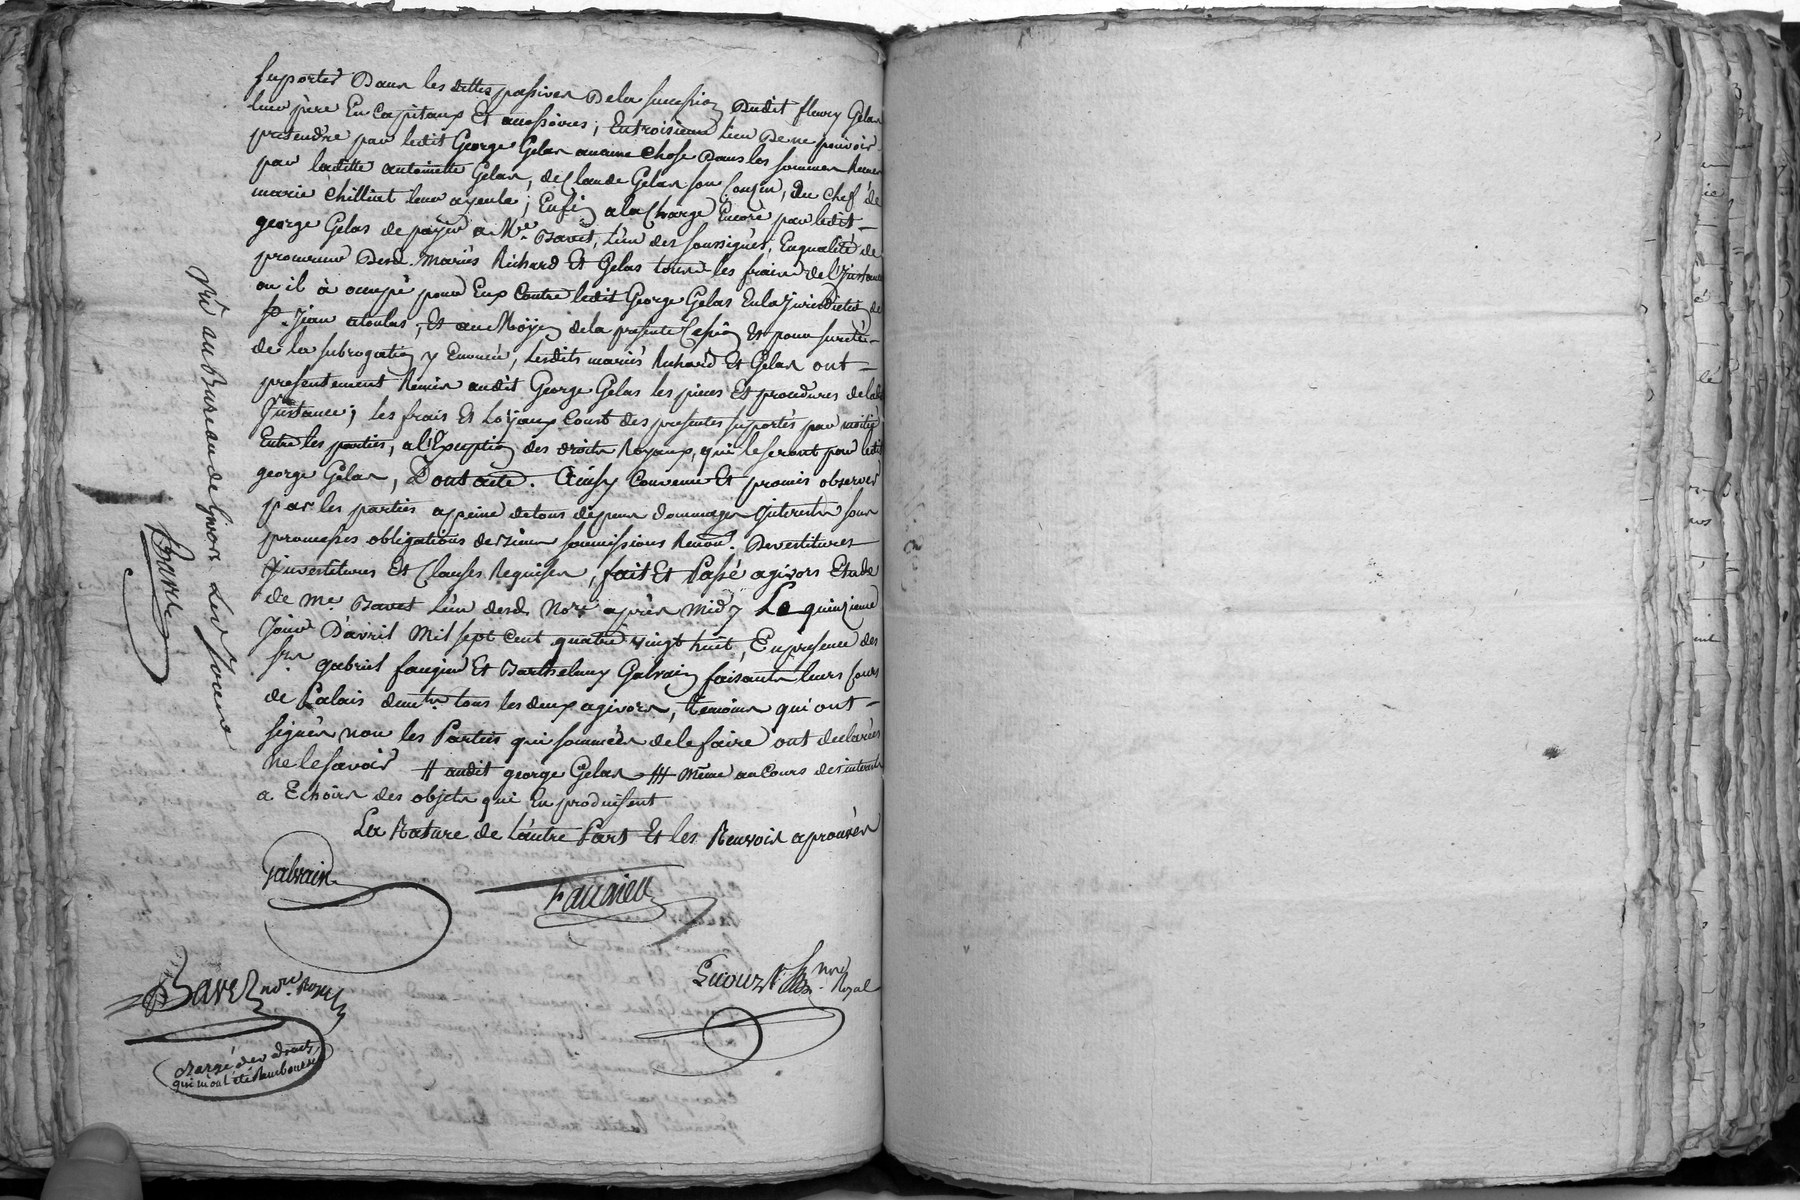 suporter Dans les dettes passives De la succession Dudit fleury Gelas
leur père En Capitaux Et accessoires; En troisieme lieu De ne pouvoir
pretendre par ledit George Gelas aucune Chose Dans les sommes
par laditte antoinette Gelas, de Claude Gelas son Cousin, du Chef de
marie Chilliat leur ayeule; Enfin a la Charge Encore par ledit
george Gelas de payer à Me. Bavet, L'un des soussignés, En qualité de
procureur Desd. Mariés Richard Et Gelas tous les frais de l'Instance
ou il à occupé pour Eux Contre ledit George Gelas En la Jurisdiction de
St. Jean atoulas, Et au Moÿen de la presente Cession Et pour sureté
de la subrogation y Enoncée, Lesdits mariés Richard Et Gelas ont
presentement Remis audit George Gelas les pieces Et procedures de lad.
Instance; les frais Et Loÿaux Coust des presentes suportés par moitié
Entre les parties, a l'Exception des droits Royaux, qui le seront par ledit
george Gelas, Dont acte. Ainsy Convenu Et promis observer
par les parties a peine de tous depens dommages Interests sous
promesses obligations de biens soumissions Renon. Devestitures
Investitures Et Clauses Requises, fait Et Passé a givors Etude
de me. Bavet L'un desd. Nores après midy Le quinzieme
Jour D'avril Mil sept cent quatre vingt huit, En presence des
srs. gabriel faugier Et Barthelemy Galvain faisants leurs Cours
de Palais demts tous les deux a givors, temoins qui ont
signés non les Parties qui sommées de le faire ont declarées
ne le savoir # audit george Gelas ## même au Cours des interets
a Echoirs des objets qui En produisent
La Rature de l'autre Part Et les Renvois aprouvés
Galvain
Faugier
Bavet nore. Royal
nre Royal
chargé des droits
qui m'ont été Remboursés
au Bureau de Givors Led Jour